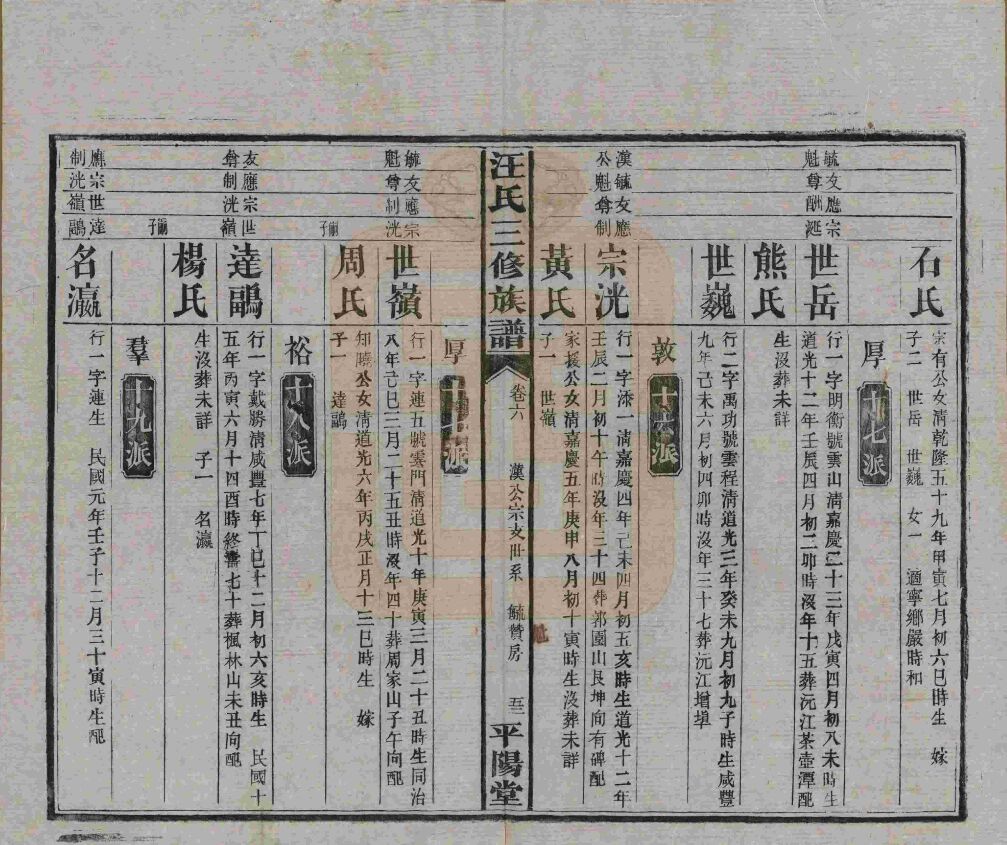 石氏
宗有公女清乾隆五十九年甲寅七月初六巳時生 嫁
子二 世岳 世巍 女一 適寧鄉嚴時和
厚 十七派
毓友應宗
魁尊酬涎
世岳
行一字明衡號雲山清嘉慶二十三年戊寅四月初八未時生
道光十二年壬辰四月初二卯時沒年十五葬沅江茶壺潭配
熊氏
生沒葬未詳
世巍
行二字禹功號雲程清道光三年癸未九月初九子時生咸豐
九年己未六月初四卯時沒年三十七葬沅江增埧
敦 十六派
漢毓友應
公魁尊制
宗洸
行一字添一清嘉慶四年己未四月初五亥時生道光十二年
壬辰二月初十午時沒年三十四葬郭園山艮坤向有碑配
黃氏
家援公女清嘉慶五年庚申八月初十寅時生沒葬未詳
子一 世嶺
汪氏三修族譜
卷六 漢公宗支世系 毓贊房 五三
平陽堂
厚 十七派
毓友應宗
魁尊制洸
世嶺
行一字連五號雲門清道光十年庚寅三月二十丑時生同治
八年己巳三月二十五丑時沒年四十葬周家山子午向配
嗣子
周氏
知曉公女清道光六年丙戌正月十三巳時生 嫁
子一 達鷊
裕 十八派
友應宗世
尊制洸嶺
達鷊
行一字戴勝清咸豐七年丁巳十二月初六亥時生 民國十
五年丙寅六月十四酉時終壽七十葬楓林山未丑向配
嗣子
楊氏
生沒葬未詳 子一 名瀛
羣 十九派
應宗世達
制洸嶺鷊
名瀛
行一字連生 民國元年壬子十二月三十寅時生配